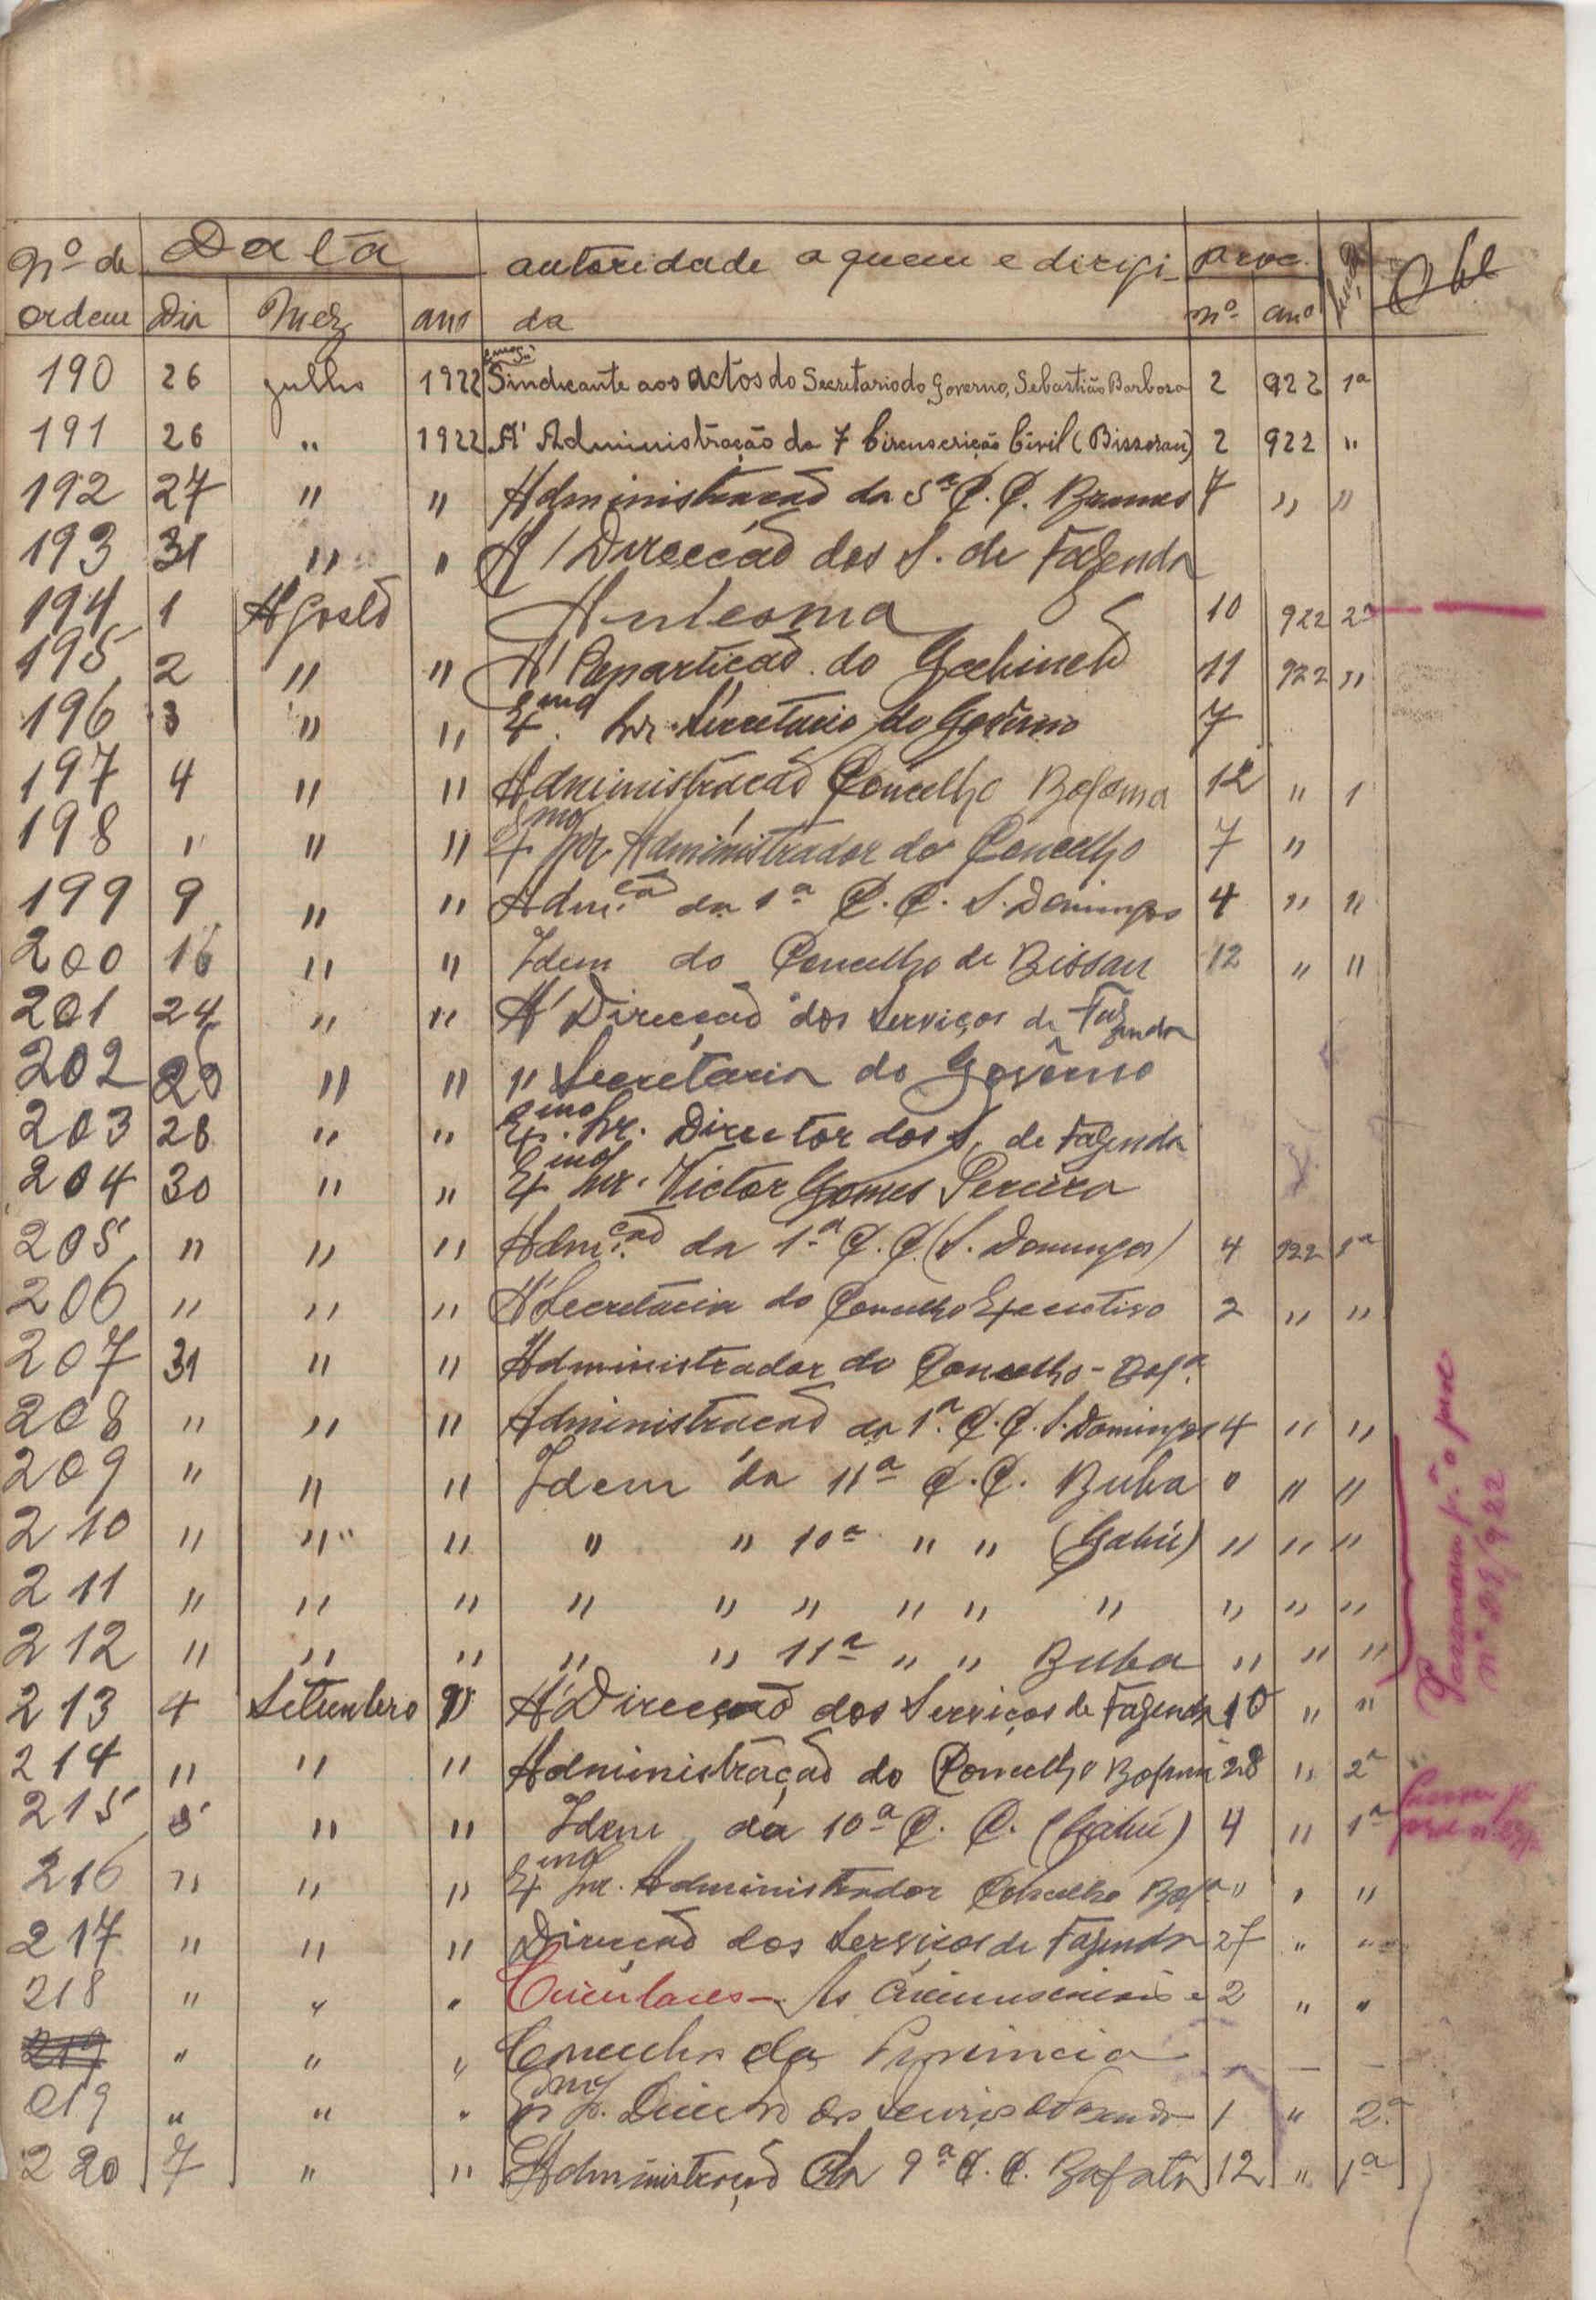 Nº de Data autoridade a quem e dirigi- Proc. Obs
ordem Dia Mez ano da nº ano
190 26 Julho 1922 Exmo Snr Sindicante aos actos do Secretario do Governo, Sebastião Barbosa 2 922 1ª
191 26 " 1922 A' Administração da 7 Circunscrição Civil (Bissoran) 2 922 "
192 27 " " Administracão da 5ª C. C. Brames 4 " "
193 31 " " A' Direccão dos S. de Fazenda
194 1 Agosto A mesma 10 922 2ª
195 2 " " A' Reparticão do Gabinete 11 922 "
196 3 " " Exmo Snr. Secretario do Govêrno 7
197 4 " " Administracão Concelho Bolama 12 " 1
198 " " " Exmo Snr Administrador do Concelho 7 "
199 9 " " Adm.cão da 1ª C. C. S. Domingos 4 " "
200 16 " " Idem do Concelho de Bissau 12 " "
201 24 " " A' Direcção dos Serviços de Fazenda
202 26 " " " Secretaria do Govêrno
203 28 " " Exmo. Snr. Director dos S. de Fazenda
204 30 " " Exmo Snr. Victor Gomes Pereira
205 " " " Adm.cão da 1ª C. C. (S. Domingos) 4 922 1ª
206 " " " A' Secretaria do Conselho Executivo 2 " "
207 31 " " Administrador do Concelho - Bolª.
208 " " " Administracão da 1ª. C. C. S. Domingos 4 " "
209 " " " Idem da 11ª C. C. Buba " " "
210 " " " " " 10ª " " (Gabú) " " "
211 " " " " " " " " " " " "
212 " " " " " 11ª " " Buba " " "
213 4 Setembro " A' Direcção dos Serviços de Fazenda 10 " "
214 " " " Administração do Concelho Bolama 28 " 2ª
215 5 " " Idem da 10ª C. C. (Gabú) 4 " 1ª
216 " " " Exmo Snr. Administrador Concelho Bolª " " "
217 " " " Direcção dos Serviços de Fazenda 27 " "
218 " " " Circulares - As Circunscricões e 2 " "
219 " " " Concelhos da Provincia - - -
219 " " " Exmo Sr. Director dos Serviços de Fazenda 1 " 2ª
220 7 " " Administração da 9ª C. C. Bafatá 12 " 1ª
Passaram pª o proc
nº 29/922